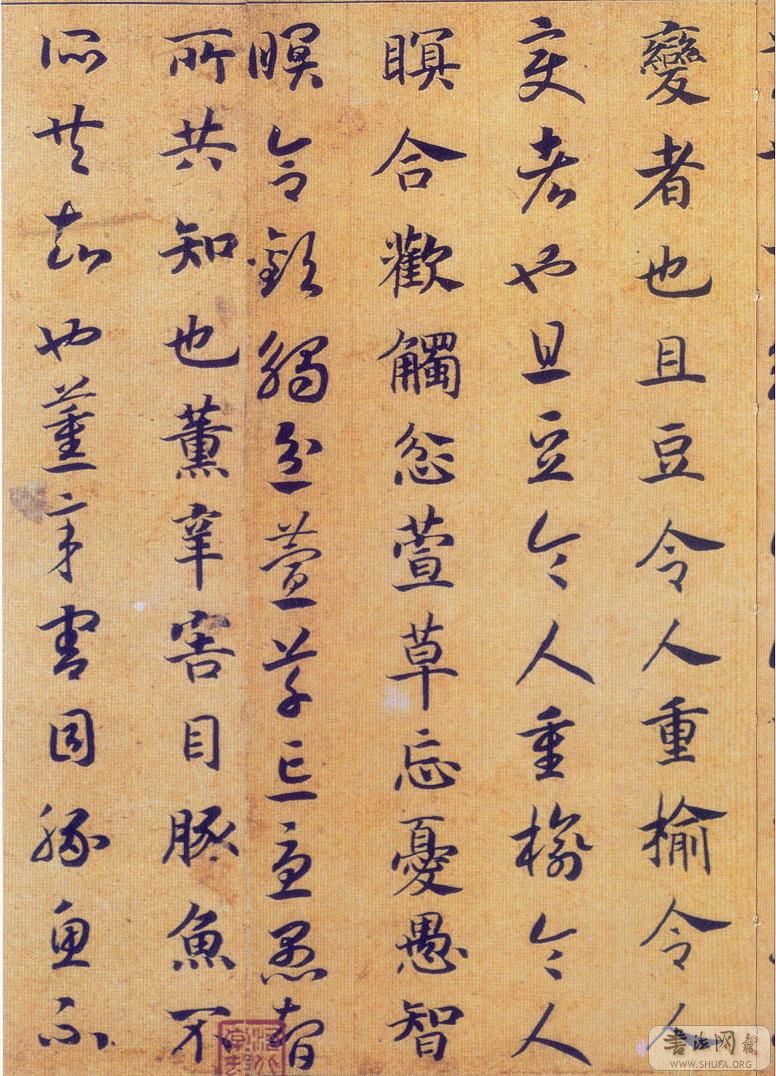 變者也且豆令人重榆令人
變者也且豆令人重榆令人
瞑合歡觸忿萱草忘憂愚智
瞑合歡觸忿萱草忘憂愚智
所共知也薰辛害目豚魚不
所共知也薰辛害目豚魚不
書法网
WWW.SHUFA.ORG